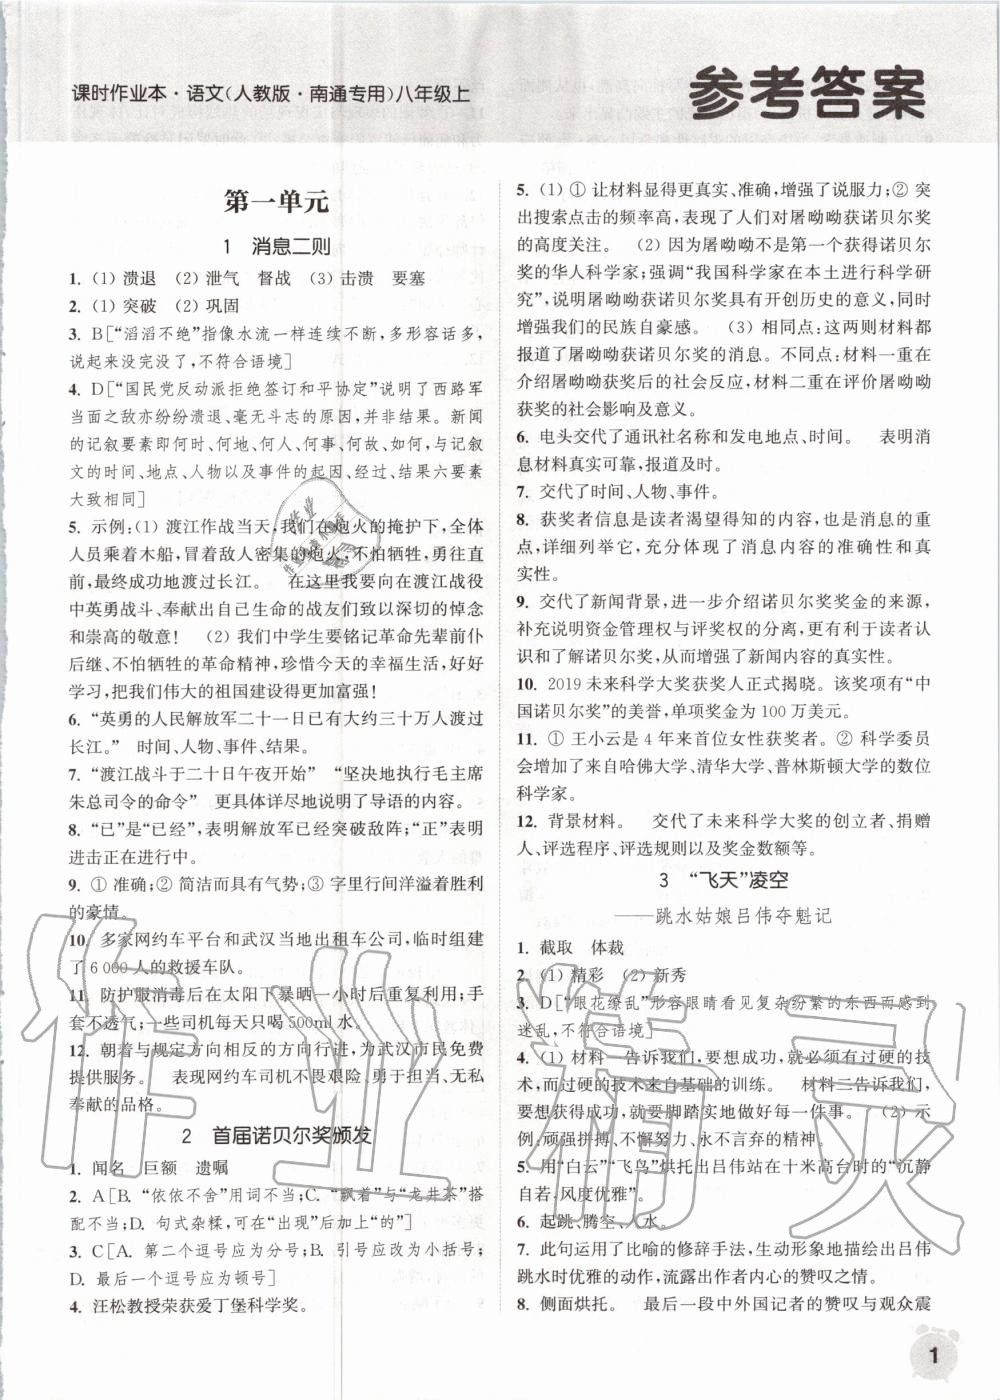 课时作业本·语文(人教版·南通专用)八年级上
参考答案
第一单元
1 消息二则
1. (1) 溃退 (2) 泄气 督战 (3) 击溃 要塞
2. (1) 突破 (2) 巩固
3. B[“滔滔不绝”指像水流一样连续不断,多形容话多,
说起来没完没了,不符合语境]
4. D[“国民党反动派拒绝签订和平协定”说明了西路军
当面之敌亦纷纷溃退、毫无斗志的原因,并非结果。新闻
的记叙要素即何时、何地、何人、何事、何故、如何,与记叙
文的时间、地点、人物以及事件的起因、经过、结果六要素
大致相同]
5. 示例:(1) 渡江作战当天,我们在炮火的掩护下,全体
人员乘着木船,冒着敌人密集的炮火,不怕牺牲,勇往直
前,最终成功地渡过长江。 在这里我要对在渡江战役
中英勇战斗、奉献出自己生命的战友们致以深切的悼念
和崇高的敬意! (2) 我们中学生要铭记革命先辈前仆
后继、不怕牺牲的革命精神,珍惜今天的幸福生活,好好
学习,把我们伟大的祖国建设得更加富强!
6. “英勇的人民解放军二十一日已有大约三十万人渡过
长江。” 时间、人物、事件、结果。
7. “渡江战斗于二十日午夜开始” “坚决地执行毛主席
朱总司令的命令” 更具体详尽地说明了导语的内容。
8. “已”是“已经”,表明解放军已经突破敌阵;“正”表明
进击正在进行中。
9. ① 准确;② 简洁而具有气势;③ 字里行间洋溢着胜利
的豪情。
10. 多家网约车平台和武汉当地出租车公司,临时组建
了 6 000 人的救援车队。
11. 防护服消毒后在太阳下暴晒一小时后重复利用;手
套不透气;一些司机每天只喝 500ml 水。
12. 朝着与规定方向相反的方向行进,为武汉市民免费
提供服务。 表现网约车司机不畏艰险、勇于担当、无私
奉献的品格。
2 首届诺贝尔奖颁发
1. 闻名 巨额 遗嘱
2. A[B. “依依不舍”用词不当;C. “飘着”与“龙井茶”搭
配不当;D. 句式杂糅,可在“出现”后加上“的”]
3. C[A. 第二个逗号应为分号;B. 引号应改为小括号;
D. 最后一个逗号应为顿号]
4. 汪松教授荣获爱丁堡科学奖。
5. (1) ① 让材料显得更真实、准确,增强了说服力;② 突
出搜索点击的频率高,表现了人们对屠呦呦获诺贝尔奖
的高度关注。 (2) 因为屠呦呦不是第一个获得诺贝尔
奖的华人科学家;强调“我国科学家在本土进行科学研
究”,说明屠呦呦获诺贝尔奖具有开创历史的意义,同时
增强我们的民族自豪感。 (3) 相同点:这两则材料都
报道了屠呦呦获诺贝尔奖的消息。不同点:材料一重在
介绍屠呦呦获奖后的社会反应,材料二重在评价屠呦呦
获奖的社会影响及意义。
6. 电头交代了通讯社名称和发电地点、时间。 表明消
息材料真实可靠,报道及时。
7. 交代了时间、人物、事件。
8. 获奖者信息是读者渴望得知的内容,也是消息的重
点,详细列举它,充分体现了消息内容的准确性和真
实性。
9. 交代了新闻背景,进一步介绍诺贝尔奖奖金的来源,
补充说明资金管理权与评奖权的分离,更有利于读者认
识和了解诺贝尔奖,又体现了新闻内容的真实性。
10. 2019 未来科学大奖获奖人正式揭晓。该奖项有“中
国诺贝尔奖”的美誉,单项奖金为 100 万美元。
11. ① 王小云是 4 年来首位女性获奖者。② 科学委员
会增加了来自哈佛大学、清华大学、普林斯顿大学的数位
科学家。
12. 背景材料。 交代了未来科学大奖的创立者、捐赠
人、评选程序、评选规则以及奖金数额等。
3 “飞天”凌空
——跳水姑娘吕伟夺魁记
1. 截取 体裁
2. (1) 精彩 (2) 新秀
3. D[“眼花缭乱”形容眼睛看见复杂纷繁的东西而感到
迷乱,不符合语境]
4. (1) 材料一告诉我们,要想成功,就必须有过硬的技
术,而过硬的技术来自基础的训练。 材料二告诉我们,
要想获得成功,就要踏踏实实地做好每一件事。 (2) 示
例:顽强拼搏、不懈努力、永不言弃。
5. 用“白云”“飞鸟”烘托出吕伟站在十米高台时的“沉静
自若,风度优雅”。
6. 起跳、腾空、入水。
7. 此句运用了比喻的修辞手法,生动形象地描绘出吕伟
跳水时优雅的动作,流露出作者内心的赞叹之情。
8. 侧面烘托。 最后一段中外国记者的赞叹与观众震
1
作业精灵